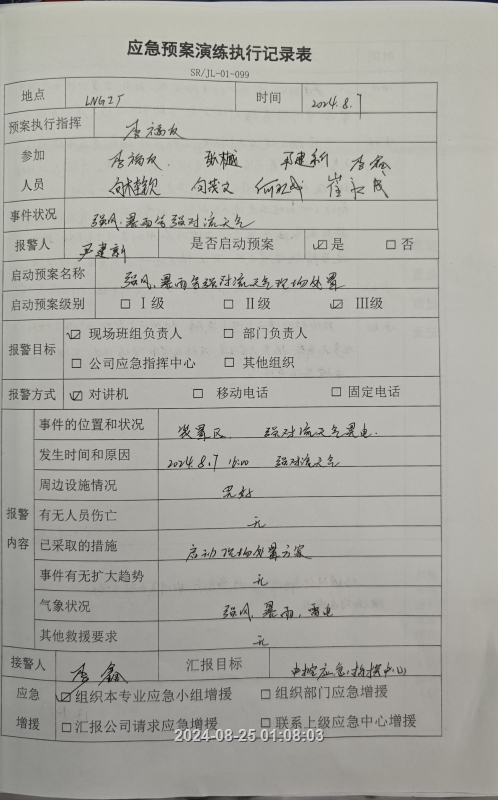 应急预案演练执行记录表
SR/JL-01-099
地点 LNG工厂 时间 2024.8.7
预案执行指挥
参加
人员
事件状况 强风、暴雨等强对流天气
报警人 尹建新 是否启动预案 ☑是 □否
启动预案名称 强风、暴雨等强对流天气现场处置
启动预案级别 □Ⅰ级 □Ⅱ级 ☑Ⅲ级
报警目标 ☑现场班组负责人 □部门负责人
□公司应急指挥中心 □其他组织
报警方式 ☑对讲机 □移动电话 □固定电话
报警
内容
事件的位置和状况 装置区 强对流天气
发生时间和原因 2024.8.7 强对流天气
周边设施情况 完好
有无人员伤亡 无
已采取的措施 启动现场处置方案
事件有无扩大趋势 无
气象状况 强风、暴雨、雷电
其他救援要求 无
接警人 李鑫 汇报目标 中控应急指挥中心
应急
增援
☑组织本专业应急小组增援 □组织部门应急增援
□汇报公司请求应急增援 □联系上级应急中心增援
2024-08-25 01:08:03